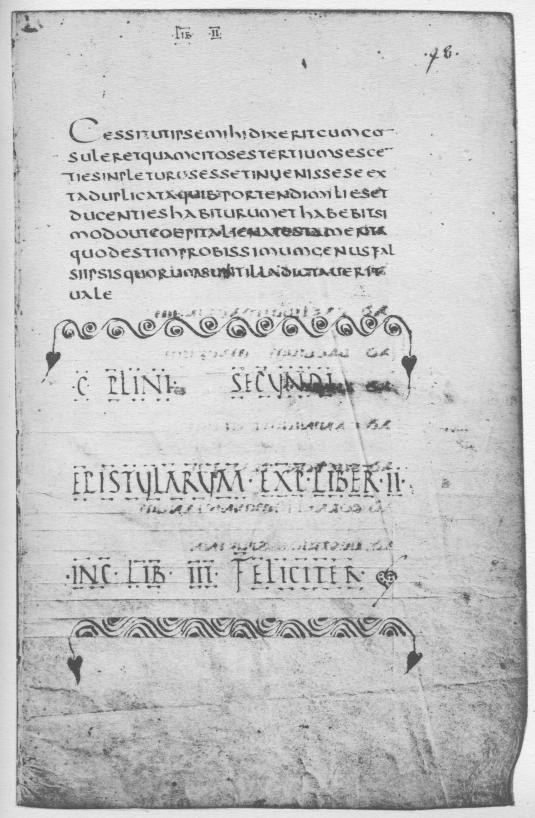 LIB II
48.
CESSITUTIPSEMIHIDIXERITCUMCO
SULERETQUAMCITOSESTERTIUMSESCE
TIESINPLETURUSESSETINUENISSESEEX
TADUPLICATAQUIBPORTENDIMILIESET
DUCENTIESHABITURUMETHABEBITSI
MODOUTCOEPITALIENATESTAMENTA
QUODESTIMPROBISSIMUMGENUSFAL
SIIPSISQUORUMSUNTILLADICTAUERIT
UALE
·C· PLINI· SECUNDI
EPISTULARUM·EXP·LIBER·II·
·INC·LIB·III·FELICITER·